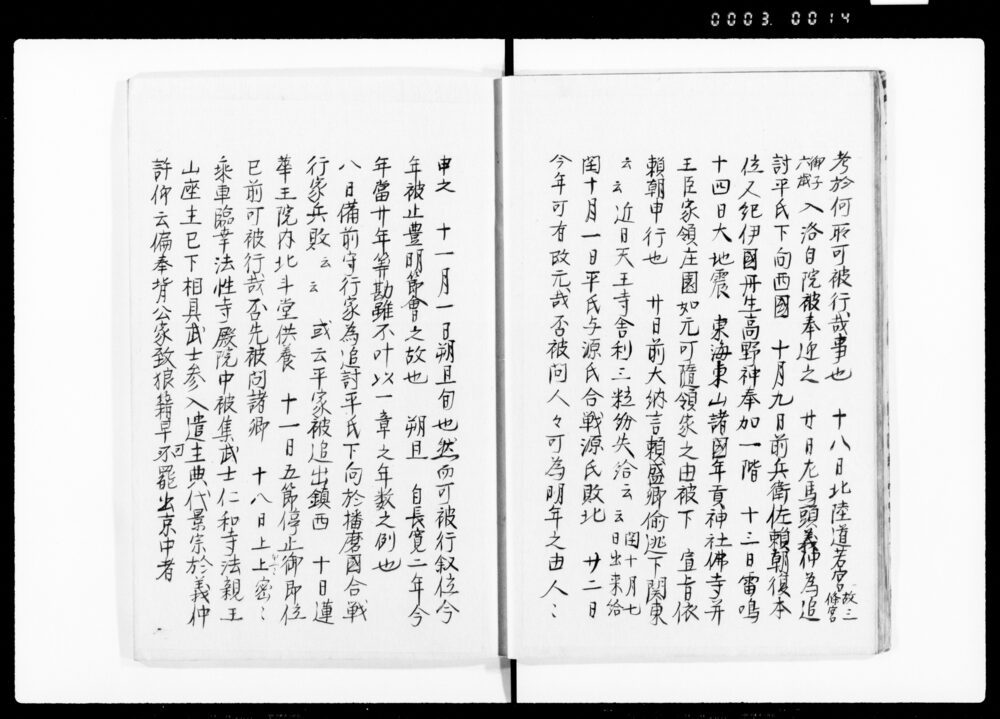 0003. 0014
考於何所可被行哉事也 十八日北陸道若宮故三條宮
御子六歳入洛自院被奉迎之 廿日左馬頭義仲為追
討平氏下向西國 十月九日前兵衛佐頼朝復本
位又紀伊國丹生高野神奉加一階 十三日雷鳴
十四日大地震 東海東山諸國年貢神社佛寺并
王臣家領庄園如元可隨領家之由被下 宣旨依
頼朝申行也 廿日前大納言頼盛卿偷逃下関東
云云近日天王寺舎利三粒紛失給云云閏十月七日出来給
閏十月一日平氏与源氏合戦源氏敗北 廿二日
今年可有改元哉否被問人々可為明年之由人〻
申之 十一月一日朔旦旬也然而可被行叙位今
年被止豊明節會之故也 朔旦 自長寛二年今
年當廿年等勘雖不叶以一章之年数之例也
八日備前守行家為追討平氏下向於播磨國合戦
行家兵敗云云 或云平家被追出鎮西 十日蓮
華王院内北斗堂供養 十一日五節停止御即位
已前可被行哉否先被問諸卿 十八日上上密〻
乗車臨幸法性寺殿院中被集武士仁和寺法親王
山座主已下相具武士参入遣主典代景宗於義仲
許仰云偏奉背公家致狼藉早可罷出京中者